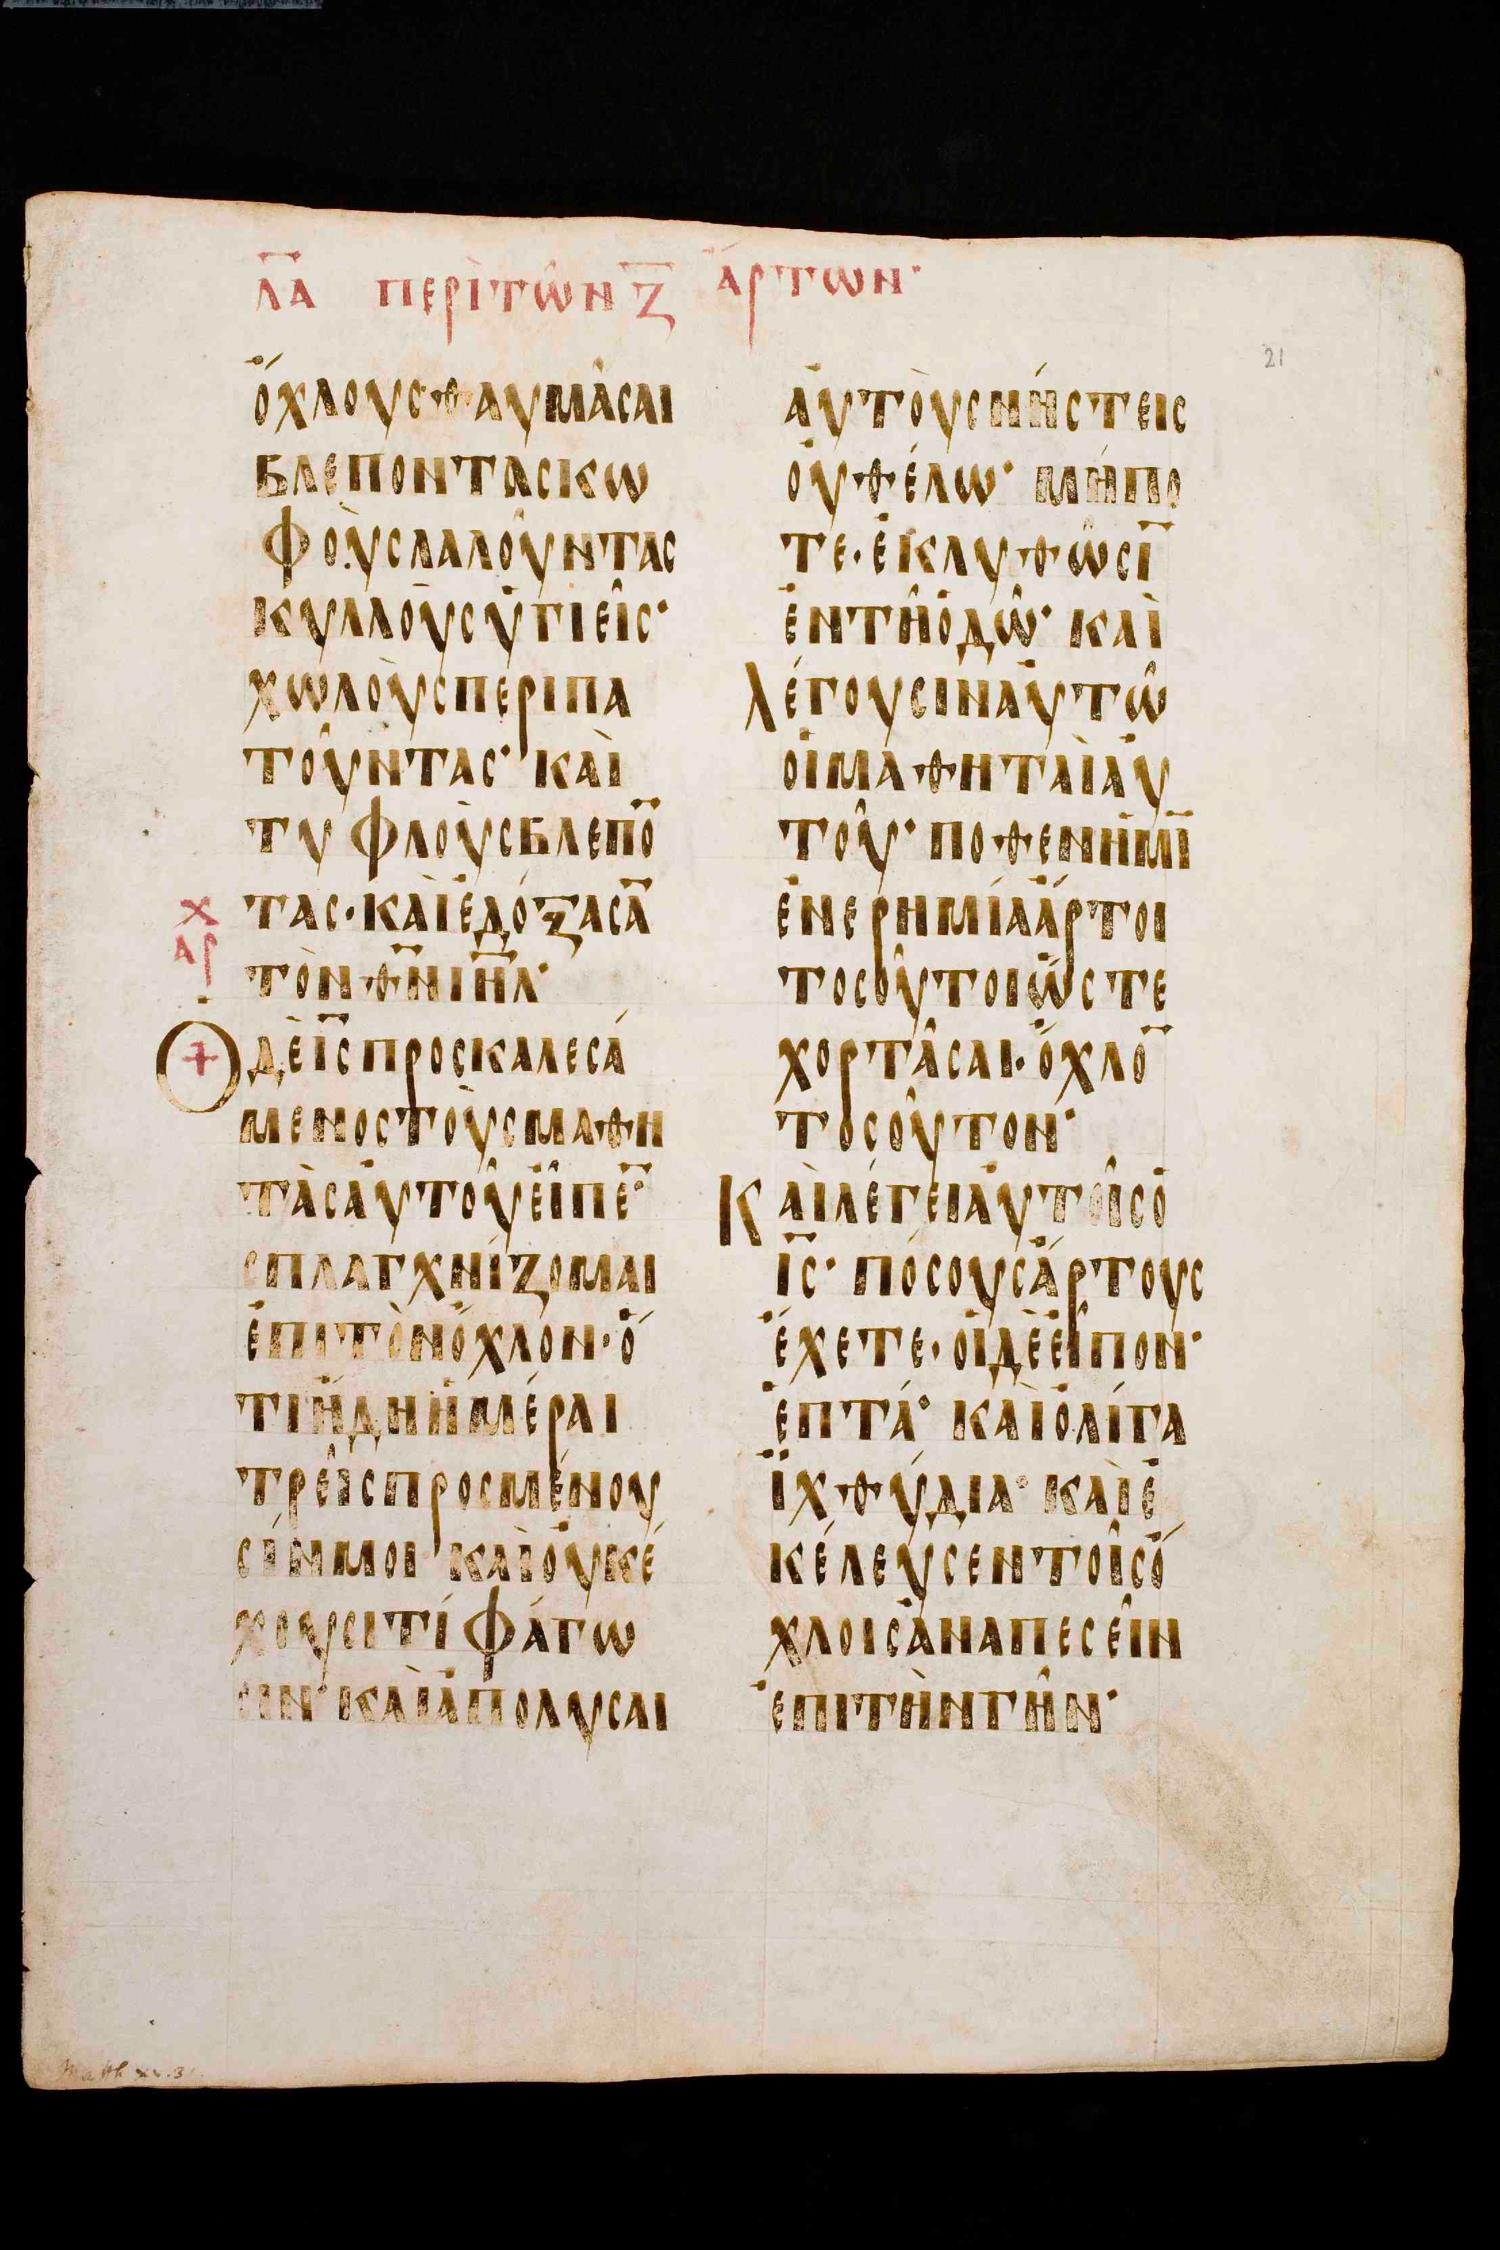 λ̅α̅ περὶ τῶν ζ̅ ἄρτων·
21
ὄχλους θαυμᾶσαι
βλεποντας κω
φοὺς λαλοῦντας
κυλλοὺς ὑγιεῖς·
χωλοὺς περιπα
τοῦντας· καὶ
τυφλοὺς βλεπο̅
τας· καὶ ἐδόξασα̅
τὸν θ̅ν̅ ι̅η̅λ̅·
χ
αρ
Ὁ δὲ ι̅ς̅ προσκαλεσά
μενος τοὺς μαθη
τὰς ἀυτοῦ εἶπε̅·
σπλαγχνίζομαι
ἐπι τὸν ὄχλον· ὅ
τι ἤδη ἡμέραι
τρεῖς προσμένου
σίν μοι· καὶ ὀυκ ἔ
χουσι τί φάγω
σιν· καὶ ἀπολυσαι
ἀυτοὺς νήστεις
ὀυ θέλω· μήπο
τε· ἐκλυθῶσι̅
ἐν τῇ ὁδῶ· καὶ
λέγουσιν ἀυτῶ
οἱ μαθηταὶ ἀυ
τοῦ· ποθεν ἡμι̅
ἐν ερημία ἄρτοι
τοσοῦτοι ὥστε
χορτᾶσαι· ὄχλο̅
τοσοῦτον·
Καὶ λέγει ἀυτοῖς ὁ
ι̅ς̅· πόσους ἄρτους
ἔχετε· οἱ δὲ εἶπον·
ἑπτά· καὶ ὀλίγα
ἰχθύδια· καὶ ἐ
κέλευσεν τοῖς ὄ
χλοις ἀναπεσεῖν
ἐπι τὴν γῆν·
Matth xv.31